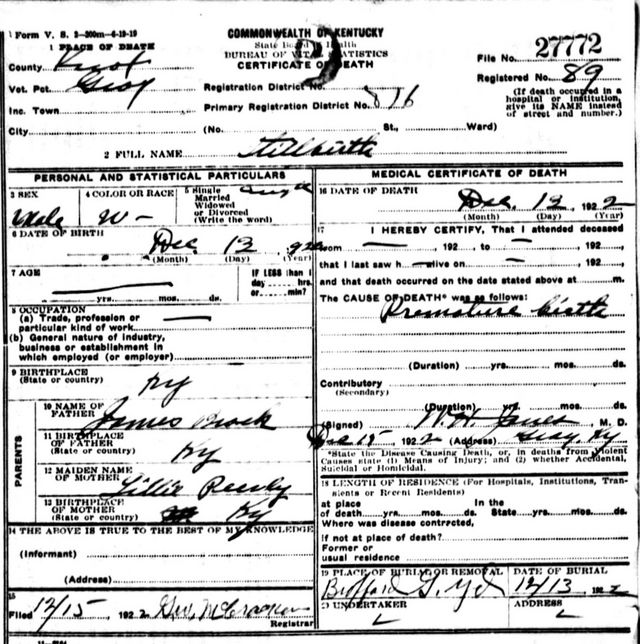 Form V. S. 2-300m-6-19-19
1 PLACE OF DEATH
COMMONWEALTH OF KENTUCKY
State Board of Health
BUREAU OF VITAL STATISTICS
CERTIFICATE OF DEATH
File No. 27772
Registered No. 89
(If death occurred in a
hospital or institution,
give its NAME instead
of street and number.)
County Knox
Vot. Pct. Gray
Inc. Town
City
Registration District No.
Primary Registration District No. 876
(No. St., Ward)
2 FULL NAME Stillbirth
PERSONAL AND STATISTICAL PARTICULARS
3 SEX
Male
4 COLOR OR RACE
W-
5 Single
Married
Widowed
or Divorced
(Write the word)
Single
6 DATE OF BIRTH
Dec 13 1922
(Month) (Day) (Year)
7 AGE
yrs. mos. ds.
IF LESS than 1
day hrs.
or min?
8 OCCUPATION
(a) Trade, profession or
particular kind of work
(b) General nature of industry,
business or establishment in
which employed (or employer)
9 BIRTHPLACE
(State or country)
Ky
PARENTS
10 NAME OF
FATHER
James Brock
11 BIRTHPLACE
OF FATHER
(State or country)
Ky
12 MAIDEN NAME
OF MOTHER
Lillie
13 BIRTHPLACE
OF MOTHER
(State or country)
Ky
14 THE ABOVE IS TRUE TO THE BEST OF MY KNOWLEDGE
(Informant)
(Address)
15
Filed 12/15 1922 Geo. McCracken
Registrar
MEDICAL CERTIFICATE OF DEATH
16 DATE OF DEATH
Dec. 13 1922
(Month) (Day) (Year)
17 I HEREBY CERTIFY, That I attended deceased
from — 192 , to — , 192
that I last saw h — alive on — , 192
and that death occurred on the date stated above at m.
The CAUSE OF DEATH* was as follows:
Premature birth
(Duration) yrs. mos. ds.
Contributory
(Secondary)
(Duration) yrs. mos. ds.
(Signed) W. H. M. D.
Dec 15 1922 (Address) Gray, Ky
*State the Disease Causing Death, or, in deaths from Violent
Causes state (1) Means of Injury; and (2) whether Accidental,
Suicidal or Homicidal.
18 LENGTH OF RESIDENCE (For Hospitals, Institutions, Tran-
sients or Recent Residents)
at place In the
of death yrs. mos. ds. State yrs. mos. ds.
Where was disease contracted,
if not at place of death?
Former or
usual residence
19 PLACE OF BURIAL OR REMOVAL
G. Yd
DATE OF BURIAL
12/13 1922
20 UNDERTAKER
ADDRESS